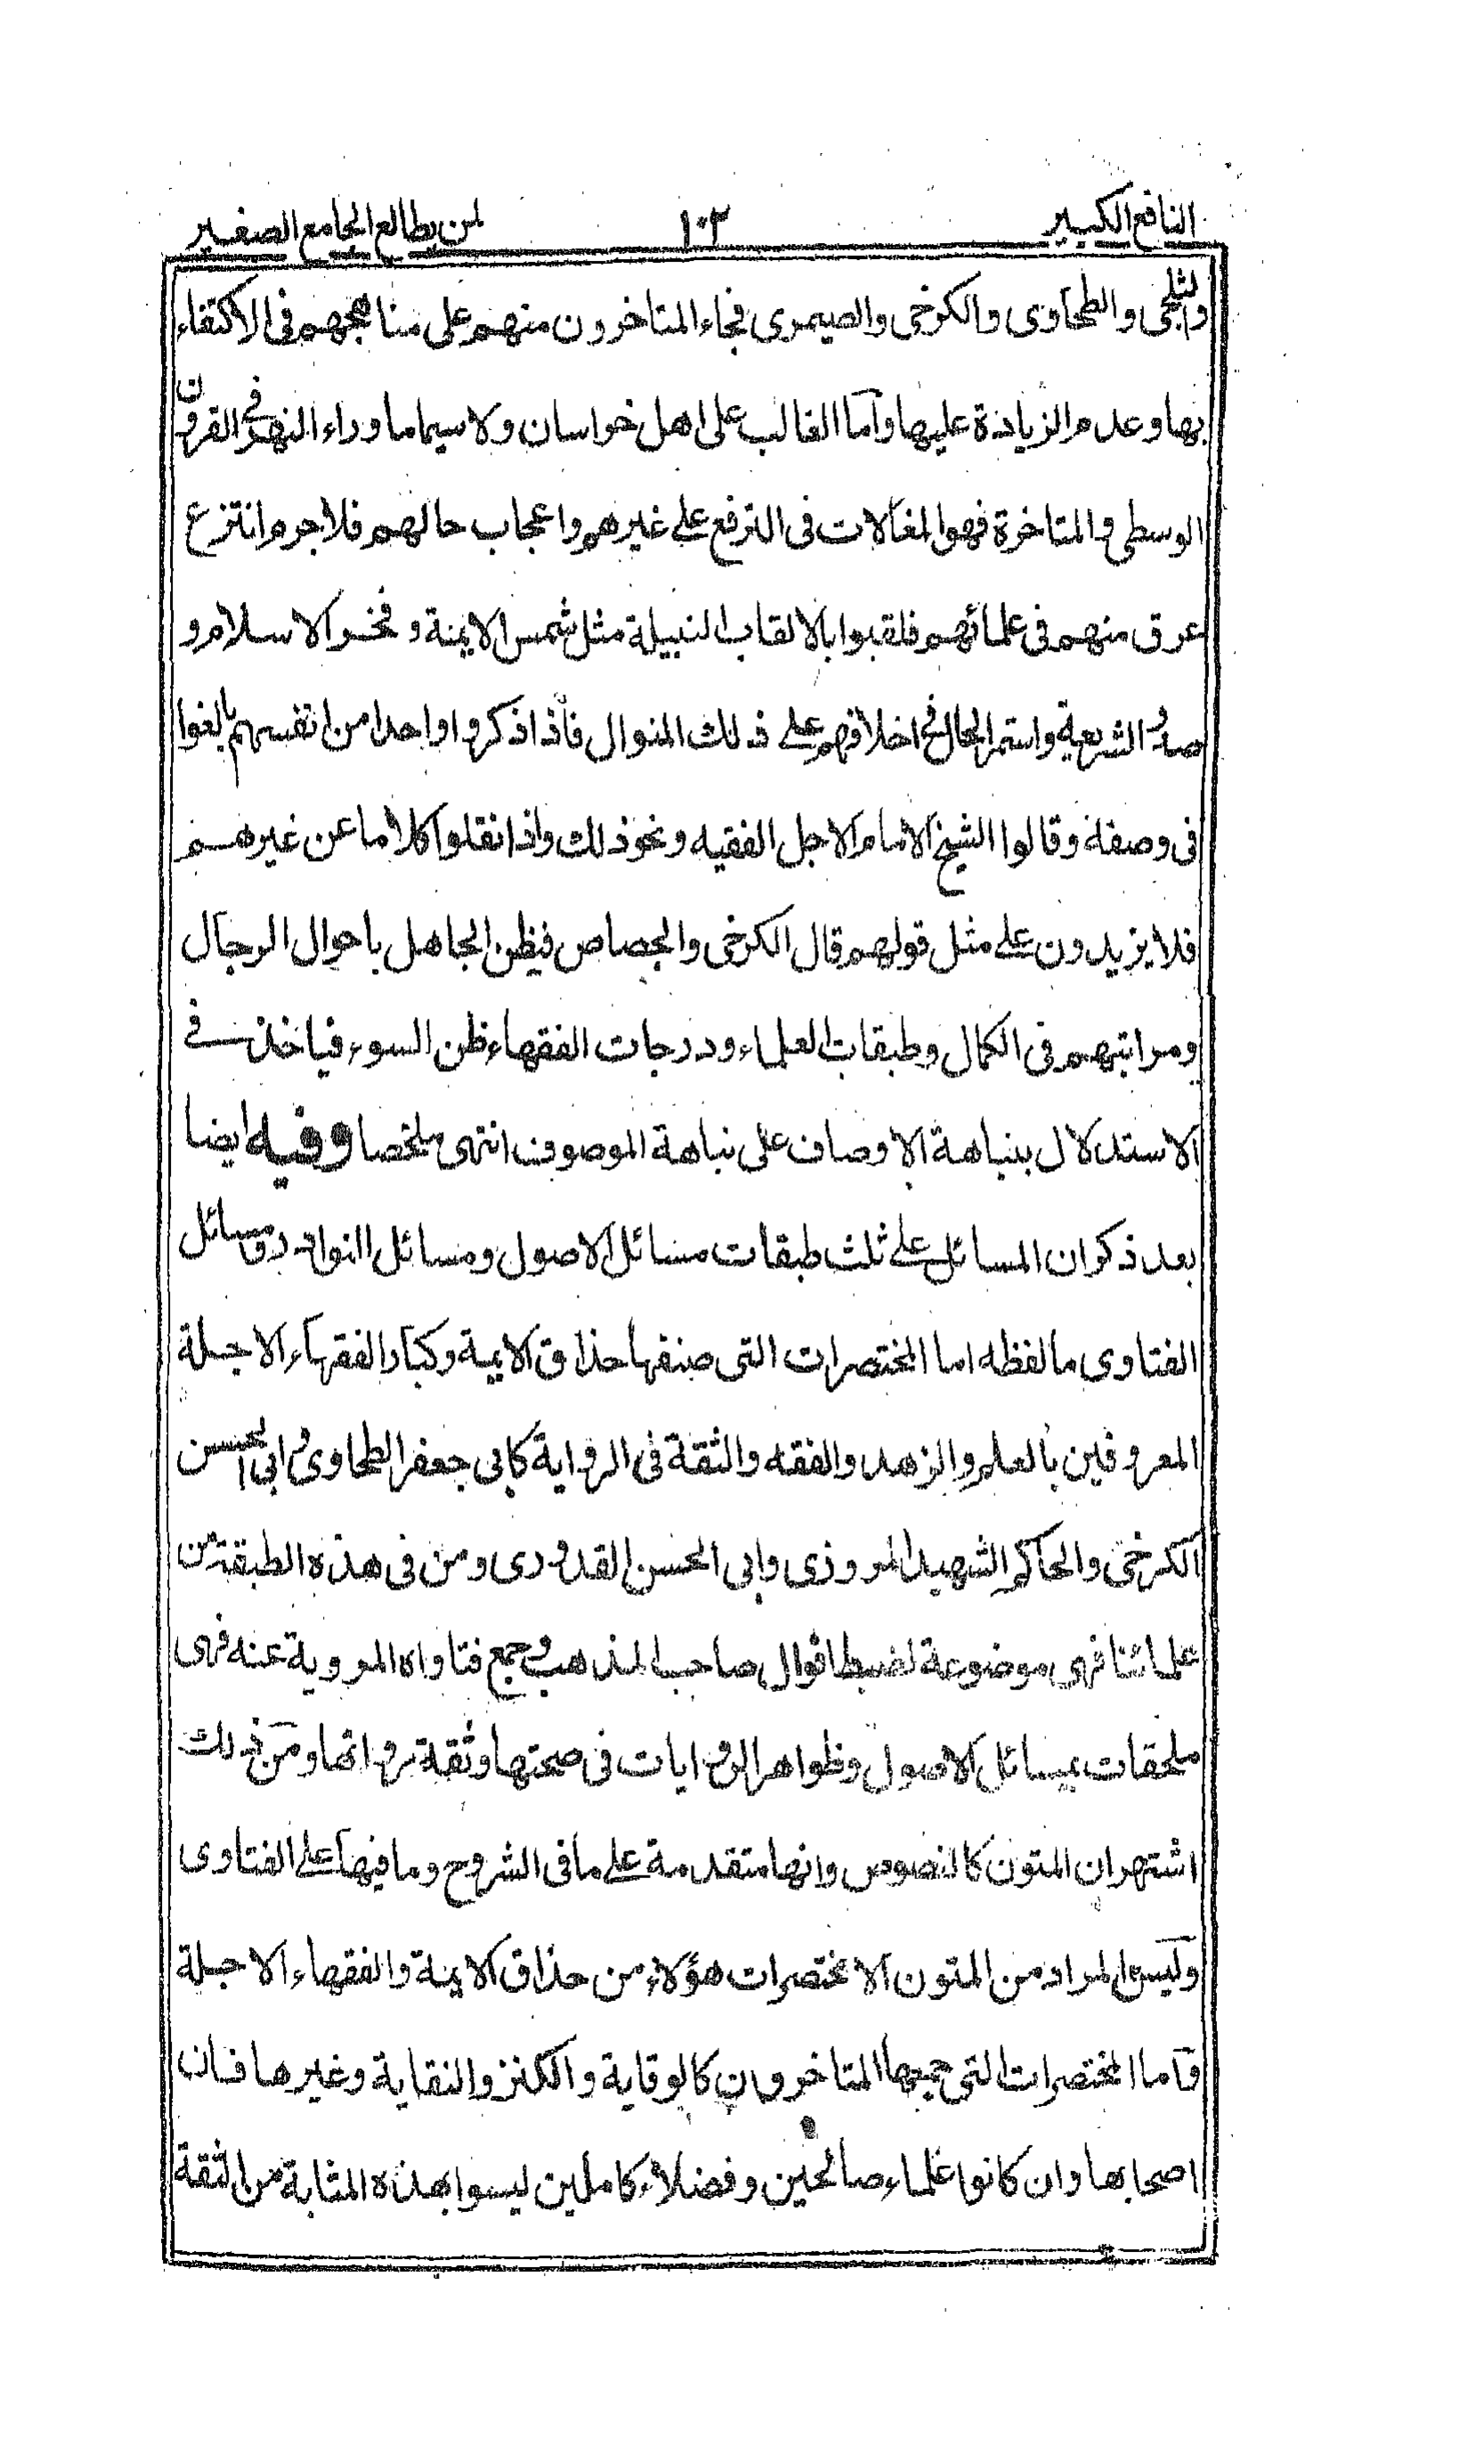 النافع الكبير ١٠٣ لمن يطالع الجامع الصغير
والثلجى والطحاوى والكرخى والصيمرى فجاء المتاخرون منهم على مناهجهم فى الاكتفاء
بها وعدم الزيادة عليها وآما الغالب على اهل خراسان ولا سيما ما وراء النهر فى القرون
الوسطى والمتاخرة فهو المغالات فى الترفع على غيرهم واعجاب حالهم فلا جرم انتزع
عرق منهم فى علمائهم فلقبوا بالالقاب النبيلة مثل شمس الايمة وفخر الاسلام و
صدر الشريعة واستمر الحال فى اخلافهم على ذلك المنوال فاذا ذكروا واحدا من انفسهم بالغوا
فى وصفه وقالوا الشيخ الامام الاجل الفقيه ونحو ذلك واذا نقلوا كلاما عن غيرهم
فلا يزيدون على مثل قولهم قال الكرخى والجصاص فيظن الجاهل باحوال الرجال
ومراتبهم فى الكمال وطبقات العلماء ودرجات الفقهاء ظن السوء فياخذ فى
الاستدلال بنباهة الاوصاف على نباهة الموصوف انتهى ملخصا وفيه ايضا
بعد ذكر ان المسائل على ثلث طبقات مسائل الاصول ومسائل النوادر ومسائل
الفتاوى ما لفظه اما المختصرات التى صنفها حذاق الايمة وكبار الفقهاء الاجلة
المعروفين بالعلم والزهد والفقه والثقة فى الرواية كابى جعفر الطحاوى وابى الحسن
الكرخى والحاكم الشهيد المروزى وابى الحسن القدورى ومن فى هذه الطبقة من
علمائنا فهى موضوعة لضبط اقوال صاحب المذهب وجمع فتاواه المروية عنه فهى
ملحقات بمسائل الاصول وظواهر الروايات فى صحتها وثقة رواتها ومن ذلك
اشتهر ان المتون كالنصوص وانها متقدمة على ما فى الشروح وما فيها على الفتاوى
وليس المراد من المتون الا مختصرات هؤلاء من حذاق الايمة والفقهاء الاجلة
وآما المختصرات التى جمعها المتاخرون كالوقاية والكنز والنقاية وغيرها فان
اصحابها وان كانوا علماء صالحين وفضلاء كاملين ليسوا بهذه المثابة من الثقة